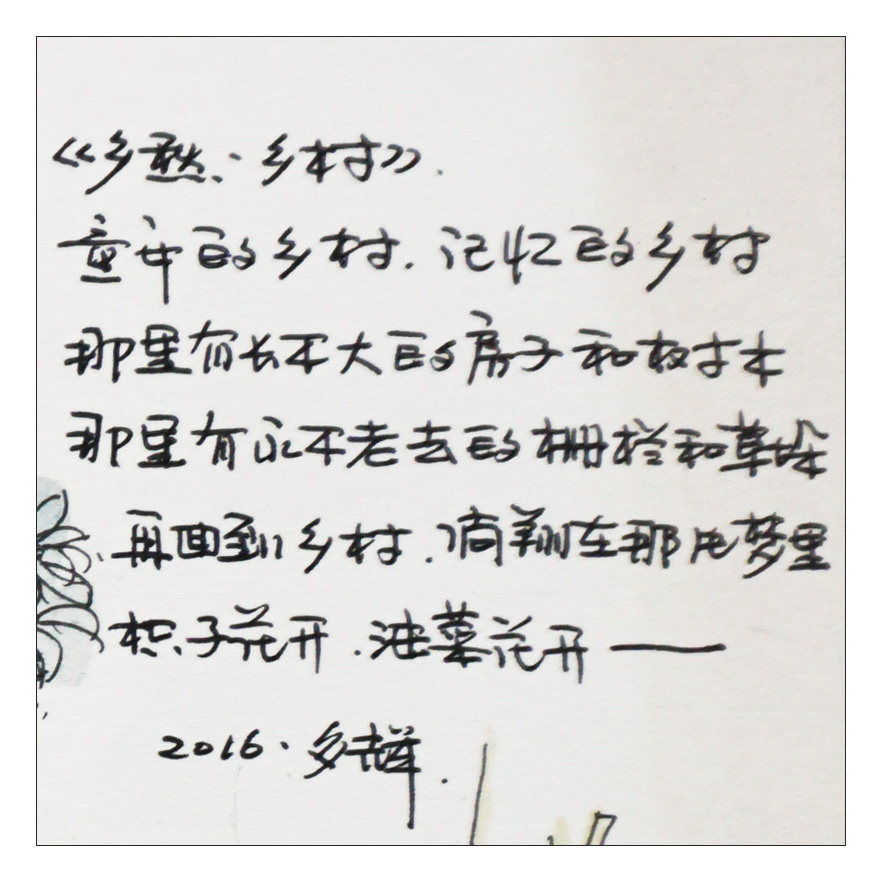 《乡愁·乡村》.
童年的乡村.记忆的乡村
那里有长不大的房子和树木
那里有永不老去的栅栏和草垛
再回到乡村.徜翔在那片梦里
枳子花开.油菜花开——
2016·